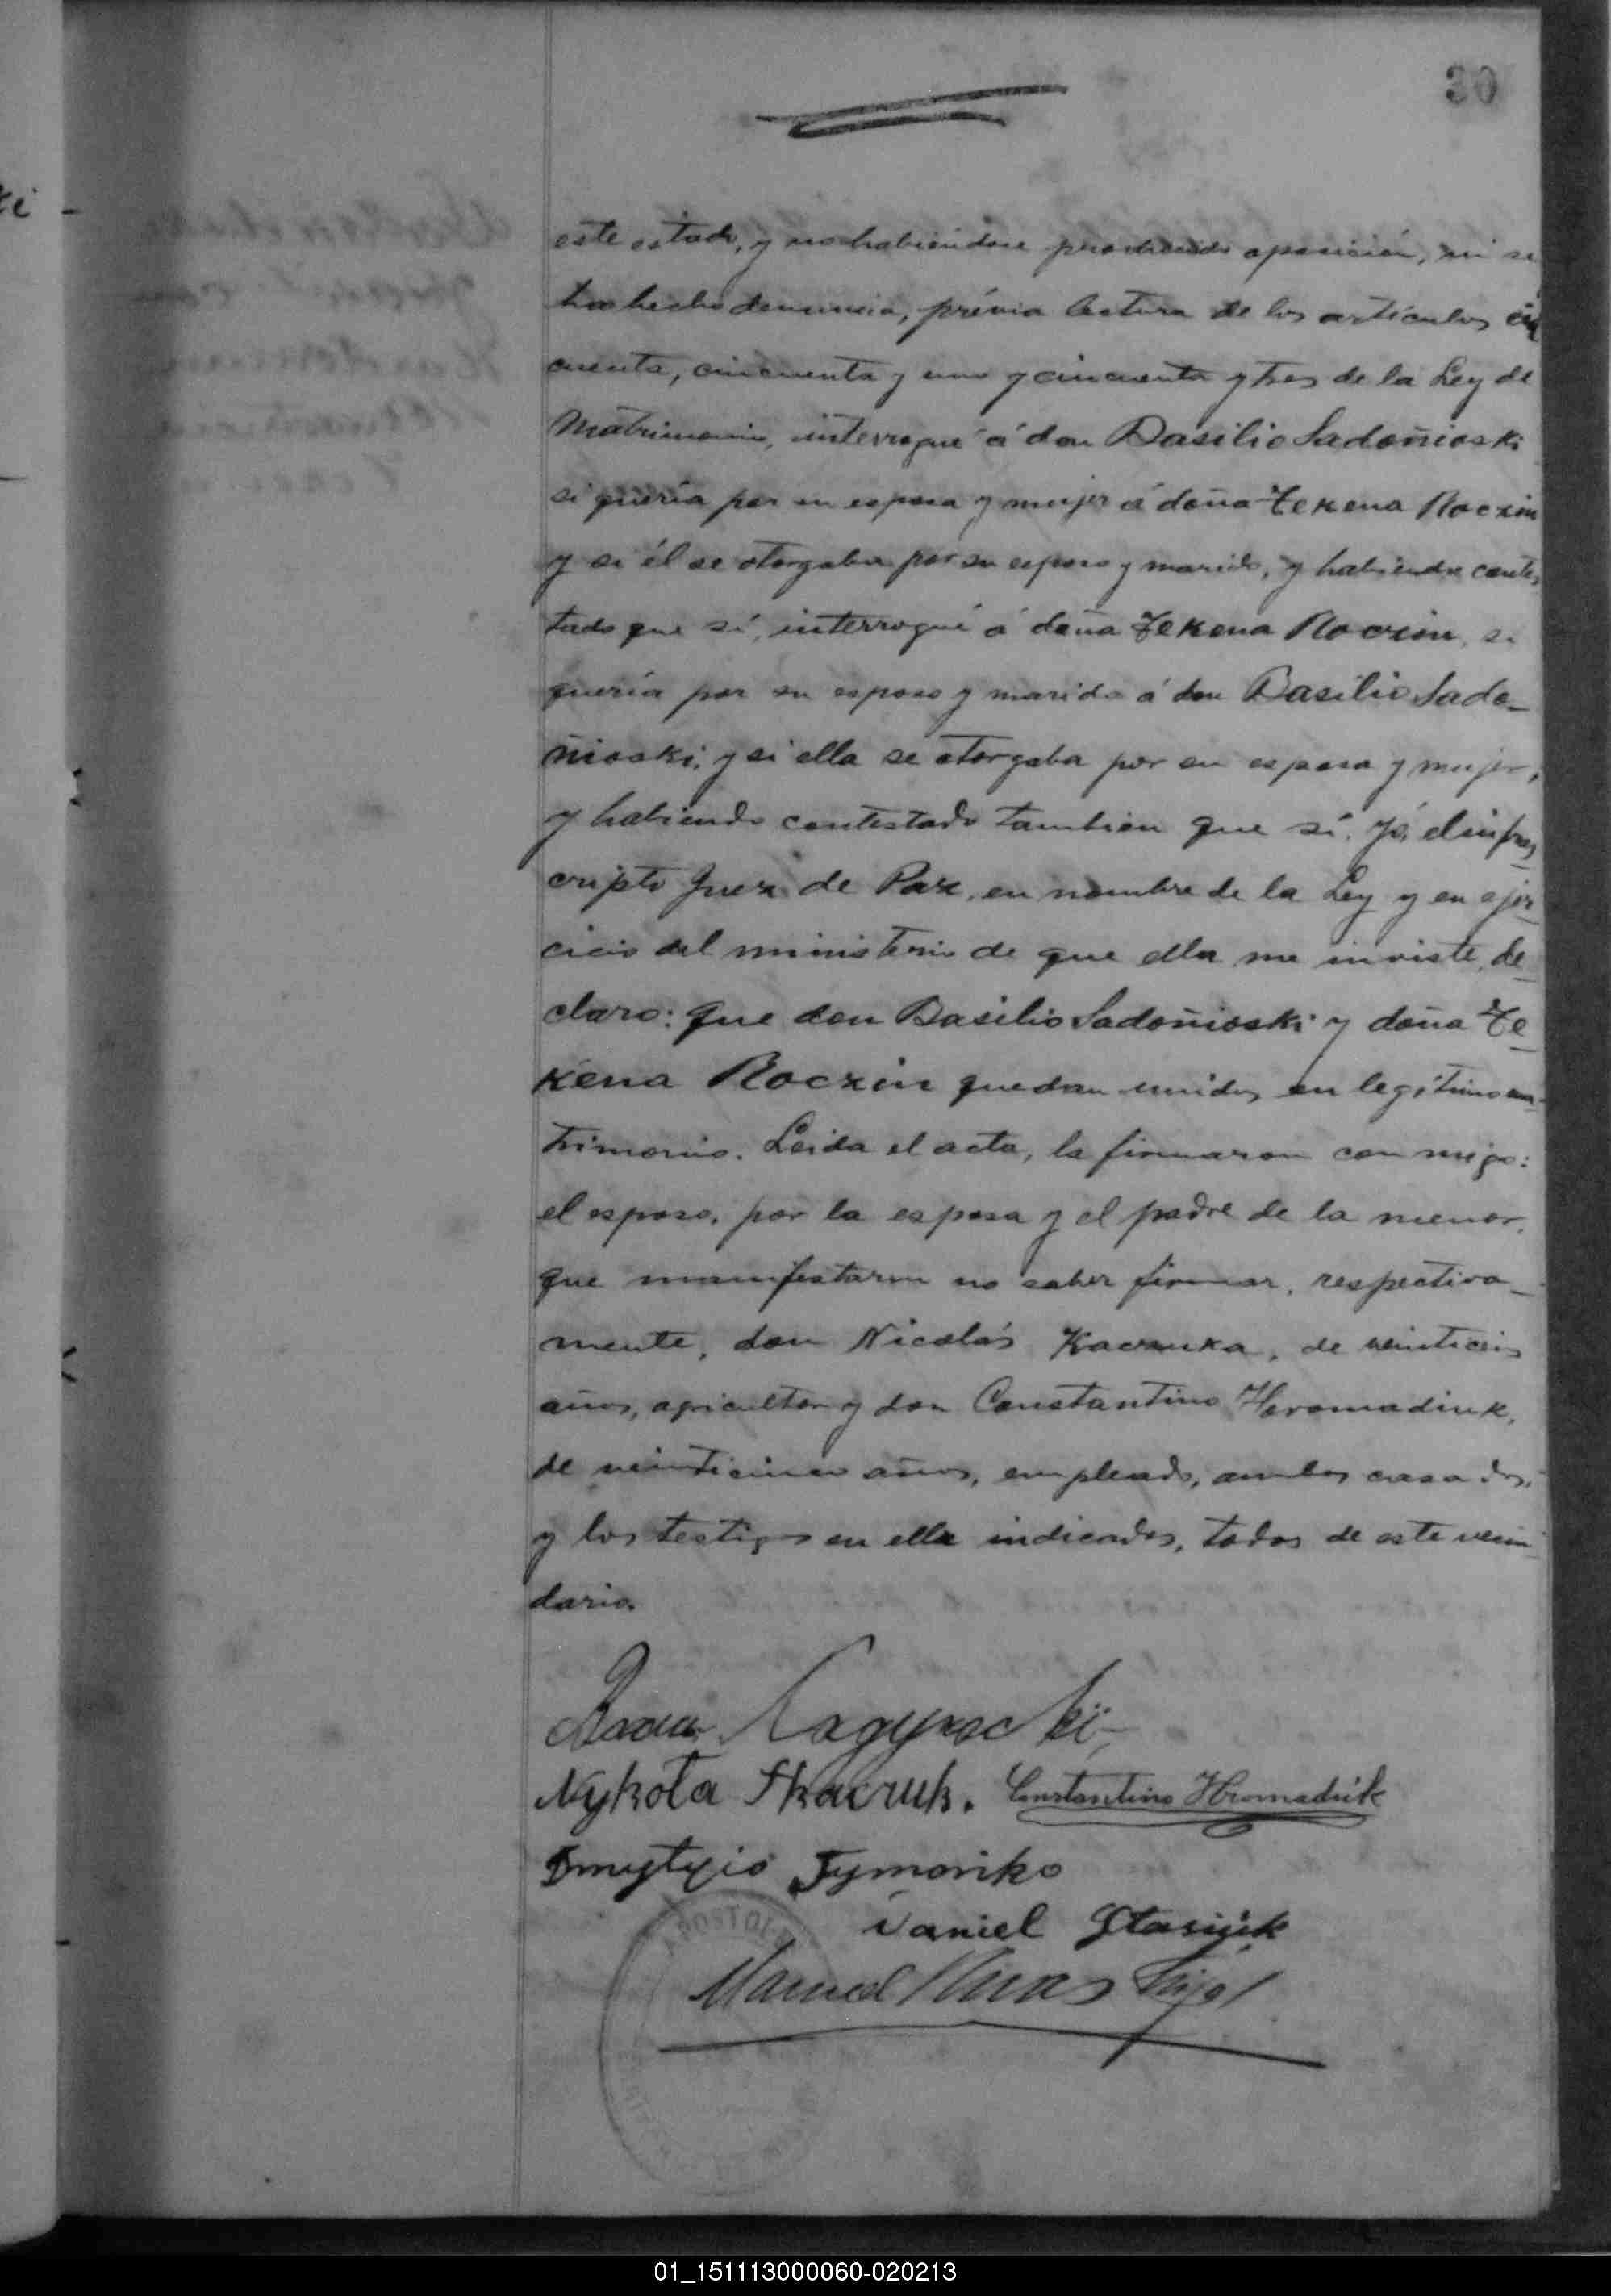 30
este estado, y no habiéndose producido oposición, ni se
ha hecho denuncia, prévia lectura de los artículos cin
cuenta, cincuenta y uno y cincuenta y tres de la Ley de
Matrimonio, interrogué á don Basilio Sadoñioski
si quería por su esposa y mujer á doña Tekena Roczin
y si él se otorgaba por su esposo y marido, y habiendo contes
tado que sí, interrogué á doña Tekena Roczin, si
quería por su esposo y marido á don Basilio Sado-
ñioski, y si ella se otorgaba por su esposa y mujer,
y habiendo contestado tambien que sí. Yo, el infras
cripto Juez de Paz, en nombre de la Ley y en ejer
cicio del ministerio de que ella me inviste, de
claro: que don Basilio Sadoñioski y doña Te
kena Roczin quedan unidos en legítimo ma-
trimonio. Leida el acta, la firmaron con migo:
el esposo, por la esposa y el padre de la menor,
que manifestaron no saber firmar, respectiva-
mente, don Nicolás Kaczuka, de
años, agricultor y don Constantino Horomadiuk,
de veinticinco años, empleado, ambos casados,
y los testigos en ella indicados, todos de este vecin
dario.
Nykola Tkaczuk. Constantino Hromadiuk
Dmytyio Tymoniko
Daniel Stasiuk
Manuel
APOSTOLES
01_151113000060-020213